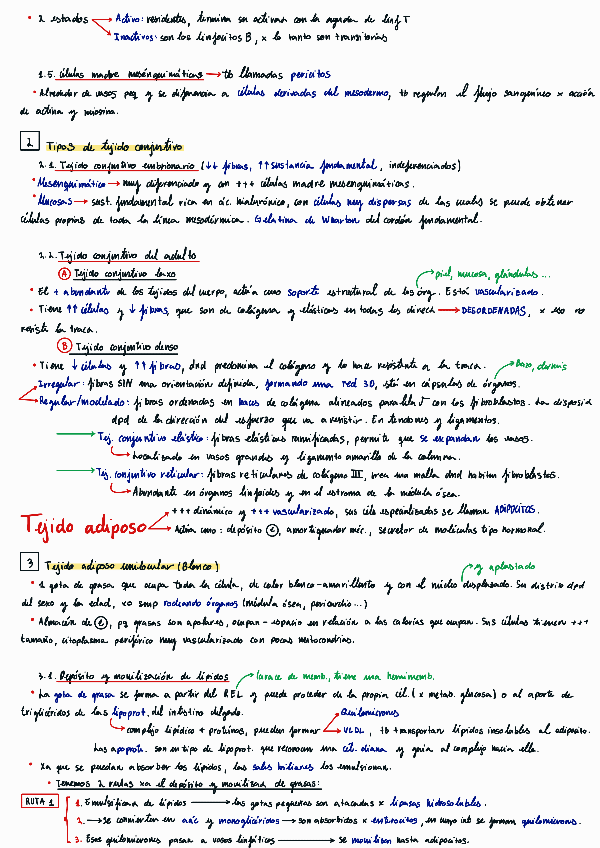 • 2 estados → Activo: residentes, termina su activar con la ayuda de linf T
→ Inactivos: son los linfocitos B, x lo tanto son transitorios
1.5. Células madre mesenquimáticas → tb llamadas pericitos
• Alrededor de vasos peq y se diferencia a células derivadas del mesodermo, tb regulan el flujo sanguíneo x acción
de actina y miosina.
2 Tipos de tejido conjuntivo
2.1. Tejido conjuntivo embrionario (↓↓ fibras, ↑↑ sustancia fundamental, indiferenciados)
• Mesenquimático → muy diferenciado y con +++ células madre mesenquimáticas.
• Mucosas → sust. fundamental rica en ác. hialurónico, con células muy dispersas de las cuales se puede obtener
células propias de toda la línea mesodérmica. Gelatina de Wharton del cordón fundamental.
2.2. Tejido conjuntivo del adulto
A Tejido conjuntivo laxo
→ piel, mucosa, glándulas ...
• El + abundante de los tejidos del cuerpo, actúa como soporte estructural de los órg. Está vascularizado.
• Tiene ↑↑ células y ↓ fibras, que son de colágeno y elásticas en todas las direcc → DESORDENADAS, x eso no
resiste la tracc.
B Tejido conjuntivo denso
• Tiene ↓ células y ↑↑ fibras, dnd predomina el colágeno y lo hace resistente a la tracc.
→ bazo, dermis
Irregular: fibras SIN una orientación definida, formando una red 3D, está en cápsulas de órganos.
Regular/modelado: fibras ordenadas en haces de colágena alineados con los fibroblastos. La disposic
dpd de la dirección del esfuerzo que va a resistir. En tendones y ligamentos.
→ Tej. conjuntivo elástico: fibras elásticas ramificadas, permite que se expandan los vasos.
→ Localizado en vasos grandes y ligamento amarillo de la columna.
→ Tej. conjuntivo reticular: fibras reticulares de colágeno III, crea una malla dnd habitan fibroblastos.
→ Abundante en órganos linfoides y en el estroma de la médula ósea.
Tejido adiposo → +++ dinámico y +++ vascularizado, sus céls especializadas se llaman ADIPOCITOS.
→ Actúa como: depósito E, amortiguador mec., secretor de moléculas tipo hormonal.
3 Tejido adiposo unilocular (Blanco)
→ y aplastado
• 1 gota de grasa que ocupa toda la célula, de color blanco-amarillento y con el núcleo desplazado. Su distrib dpd
del sexo y la edad, xo smp rodeando órganos (médula ósea, pericardio...)
• Almacén de E, pq grasas son apolares, ocupan - espacio en relación a las calorías que ocupan. Sus células tienen +++
tamaño, citoplasma periférico muy vascularizado con pocas mitocondrias.
3.1. Depósito y movilización de lípidos
→ carece de memb., tiene una hemimemb.
• La gota de grasa se forma a partir del REL y puede proceder de la propia cél. (x metab. glucosa) o al aporte de
triglicéridos de las lipoprot. del intestino delgado.
→ Quilomicrones
→ complejo lipídico + proteínas, pueden formar → VLDL, tb transportan lípidos insolubles al adiposito.
Las apoprot. son un tipo de lipoprot. que reconocen una cél. diana y guía al complejo hacia ella.
• Xa que se puedan absorber los lípidos, las sales biliares los emulsionan.
• Tenemos 2 rutas xa el depósito y movilizac de grasas:
RUTA 1
1. Emulsificac de lípidos → las gotas pequeñas son atacadas x lipasas hidrosolubles.
2. → se convierten en aác y monoglicéridos → son absorbidos x enterocitos, en cuyo int se forman quilomicrones.
3. Esos quilomicrones pasan a vasos linfáticos → se movilizan hasta adipocitos.